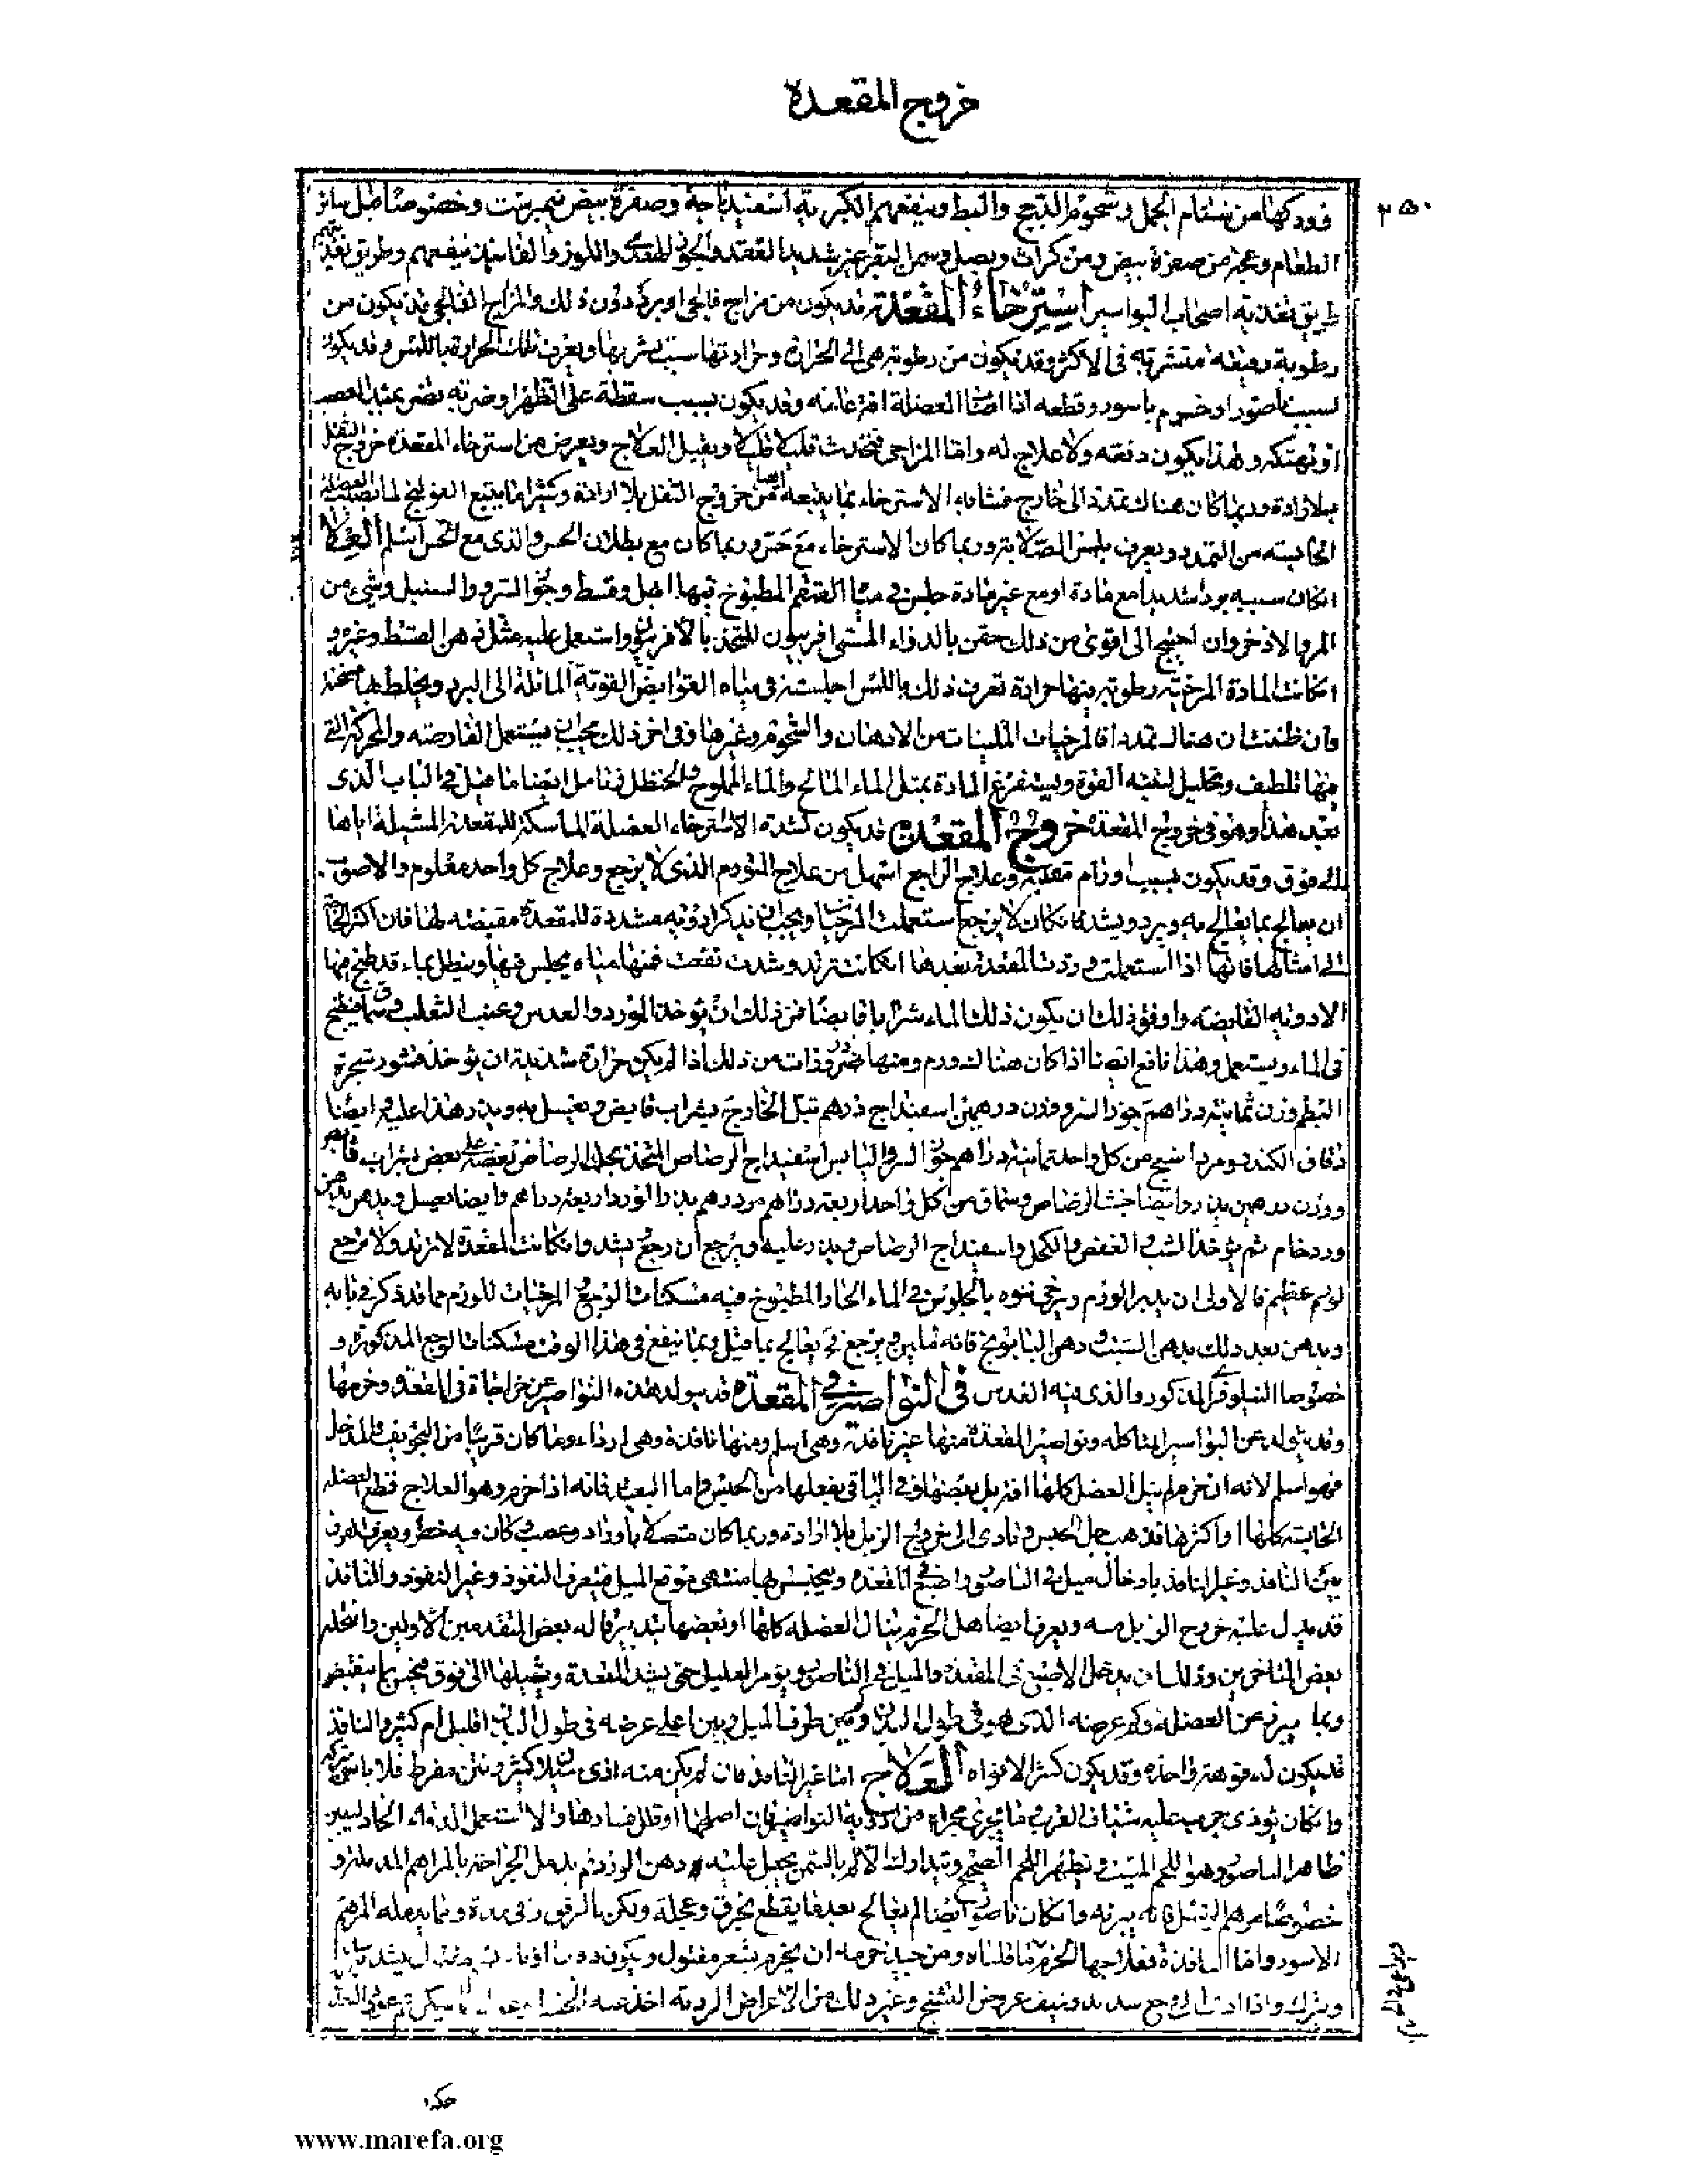 خروج المقعدة
٣٥٠
ودكها من سنام الجمل وشحوم الدجاج والبط وينفعهم الكبرية اسفيدباجة وصفرة بيض نيمبرشت وخصوصا قبل سائر
الطعام وعجة من صفرة بيض ومن كراث وبصل وسمن البقر غير شديد العقد والجوز المقلى واللوز والفانيذ ينفعهم وطريق تغذيتهم
طريق تغذية اصحاب البواسير استرخاء المقعدة قد يكون من مزاج فالجى او برد دون ذلك والمزاج الفالجى قد يكون من
رطوبة رقيقة متشربة فى الاكثر وقد يكون من رطوبة هى الى الحرارة وحرارتها سبب تشربها ويعرف تلك الحرارة باللمس وقد يكون
بسبب ناصور او خرم باسور وقطعه اذا اصاب العضلة افة عامة وقد يكون بسبب سقطة على الظهر او ضربة تضر بمبدء العصب
او تهتكه وهذا يكون دفعة ولا علاج له واما المزاجى فيحدث قليلا قليلا ويقبل العلاج ويعرض من استرخاء المقعدة خروج الثفل
بلا ارادة وربما كان هناك تمدد الى خارج فشابه الاسترخاء بما يتبعه ايضا من خروج الثفل بلا ارادة وكثيرا ما يتبع القولنج لما يصيب العضلة
الحابسة من التمدد ويعرف بلمس الصلابة وربما كان الاسترخاء مع حس وربما كان مع بطلان الحس والذى مع الحس اسلم العلاج
ان كان سببه بردا شديدا مع مادة او مع غير مادة جلس فى مياه القمقم المطبوخ فيها ابهل وقسط وجوز السرو والسنبل وشىء من
المر والاذخر وان احتيج الى اقوى من ذلك حقن بالدواء المسمى افربيون المتخذ بالافربيون واستعمل عليه مثل دهن القسط وغيره
ان كانت المادة المرخية رطوبة فيها حرارة تعرف ذلك باللمس اجلسته فى مياه القوابض القوية المائلة الى البرد ويخلط بها مسخنة
وان ظننت ان هناك تمددا فالمرخيات الملينات من الادهان والشحوم وغيرها وفى اخر ذلك يجب ان يستعمل القابضة والمحركة التى
فيها تلطيف وتحليل لتنبه القوة ويستفرغ المادة بمثل الماء المالح والماء المملوح والحنظل فتامل ايضا ما قيل فى الباب الذى
بعد هذا وهو فى خروج المقعدة خروج المقعدة قد يكون لشدة الاسترخاء العضلة الماسكة للمقعدة المشيلة اياها
الى فوق وقد يكون بسبب اورام مقعدية وعلاج الراجع اسهل من علاج المتورم الذى لا يرجع وعلاج كل واحد معلوم والاصوب
ان يعالج بما يعالج به ويرد ويشد فان كان لا يرجع استعملت المرخيات ويجب ان نذكر ادوية مشددة للمقعدة مقبضة لها فان اكثر الحاجة
الى امثالها فانها اذا استعملت وردت المقعدة بعدها ان كانت ترتد وشدت نفعت فمنها مياه يجلس فيها وينطل بماء قد طبخ فيها
الادوية القابضة واوفق ذلك ان يكون ذلك الماء شرابا قابضا فمن ذلك ان يؤخذ الورد والعدس وعنب الثعلب وسماق فيطبخ
فى الماء ويستعمل وهذا نافع ايضا اذا كان هناك ورم ومنها ذرورات من ذلك اذا لم يكن حرارة شديدة ان يؤخذ قشور شجرة
البطم وزن ثمانية دراهم جوز السرو وزن درهمين اسفيداج درهم تبل الخارجة بشراب قابض ويغسل به ويذر هذا عليه وايضا
دقاق الكندر ومرداسنج من كل واحد ثمانية دراهم جوز السرو اليابس اسفيداج الرصاص المتخذ بحك الرصاص بعضه على بعض بشراب قابض
ووزن درهمين يذر وايضا خبث الرصاص وسماق من كل واحد اربعة دراهم مر درهم بذر الورد اربعة دراهم وايضا يغسل ويدهن بدهن
ورد خام ثم يؤخذ الشب والعفص والكحل واسفيداج الرصاص ويذر عليه ويرجع ان رجع ويشد وان كانت المقعدة لا ترتد ولا ترجع
لورم عظيم فالاولى ان يدبر الورم ويرخى نتوه بالجلوس فى الماء الحار المطبوخ فيه مسكنات الوجع المرخيات للورم مما قد ذكر فى بابه
ويدهن بعد ذلك بدهن الشبث ودهن البابونج فانه فانه يلين ويرجع ثم يعالج بما قيل وبما ينفع فى هذا الوقت مسكنات الوجع المذكورة و
خصوصا النيلوفرى المذكور والذى فيه العدس فى النواصير فى المقعدة قد يتولد هذه النواصير عن جراحات فى المقعدة وخرمها
وقد يتولد عن البواسير المتاكلة ونواصير المقعدة منها غير نافذة وهى اسلم ومنها نافذة وهى اردأ وما كان قريبا من التجويف والمدخل
فهو اسلم لانه ان خرم لم ينل العضل كلها افة بل بعضها وفى الباقى يفعلها من الحبس واما البعيد فانه اذا خرم وهو العلاج قطع العضلة
الحابسة كلها او اكثرها فذهب جل الحبس وتادى الى خروج الزبل بلا ارادة وربما كان متصلا باوراد وعصب وكان فيه خطر ويعرف الفرق
بين النافذ وغير النافذ بادخال ميل فى الناصور واصبع فى المقعدة ويتحسس بها منتهى موقع الميل فيعرف النفوذ وغير النفوذ والنافذ
قد يدل عليه خروج الزبل منه ويعرف ايضا هل الخرم ينال العضلة كلها او بعضها بتدبير قاله بعض المتقدمين الاولين وانتحله
بعض المتاخرين وذلك ان يدخل الاصبع فى المقعدة والميل فى الناصور ويؤمر العليل حتى يشد المقعدة ويشيلها الى فوق فيحس بما ينقبض
وبما يبرز من العضلة وكم عرضه الذى هو فى طول البدن وكم بين طرف الميل وبين اعلى عرضه فى طول البدن اقليل ام كثير والنافذ
قد يكون له فوهة واحدة وقد يكون كثير الافواه العلاج اما غير النافذ فان لم يكن منه اذى سيلان كثير ونتن مفرط فلا باس بتركه
وان كان يؤذى جرب عليه شياف الغرب وما يجرى مجراه من ادوية النواصير فان اصلحها او قلل فسادها والا استعمل الدواء الحاد ليبين
ظاهر الناصور وهو اللحم الميت ويظهر اللحم الصحيح ويتدارك الالم بالسمن يجعل عليه ودهن الورد ثم يدمل الجراحة بالمراهم المدملة و
خصوصا مرهم الرسل فانه يبرئه وان كان ناصور ايضا لم يعالج بعد فما يقطع بخرق وعجلة ولكن بالرفق وفى مدة ومما يدمله المرهم
الاسود واما النافذة فعلاجها الخرم فما قلناه ومن جيد خرمه ان يخرم بشعر مفتول
ويترك واذا ادى الى وجع شديد وخيف عروض التشنج وغير ذلك من الاعراض الردية اخذ عنه
www.marefa.org